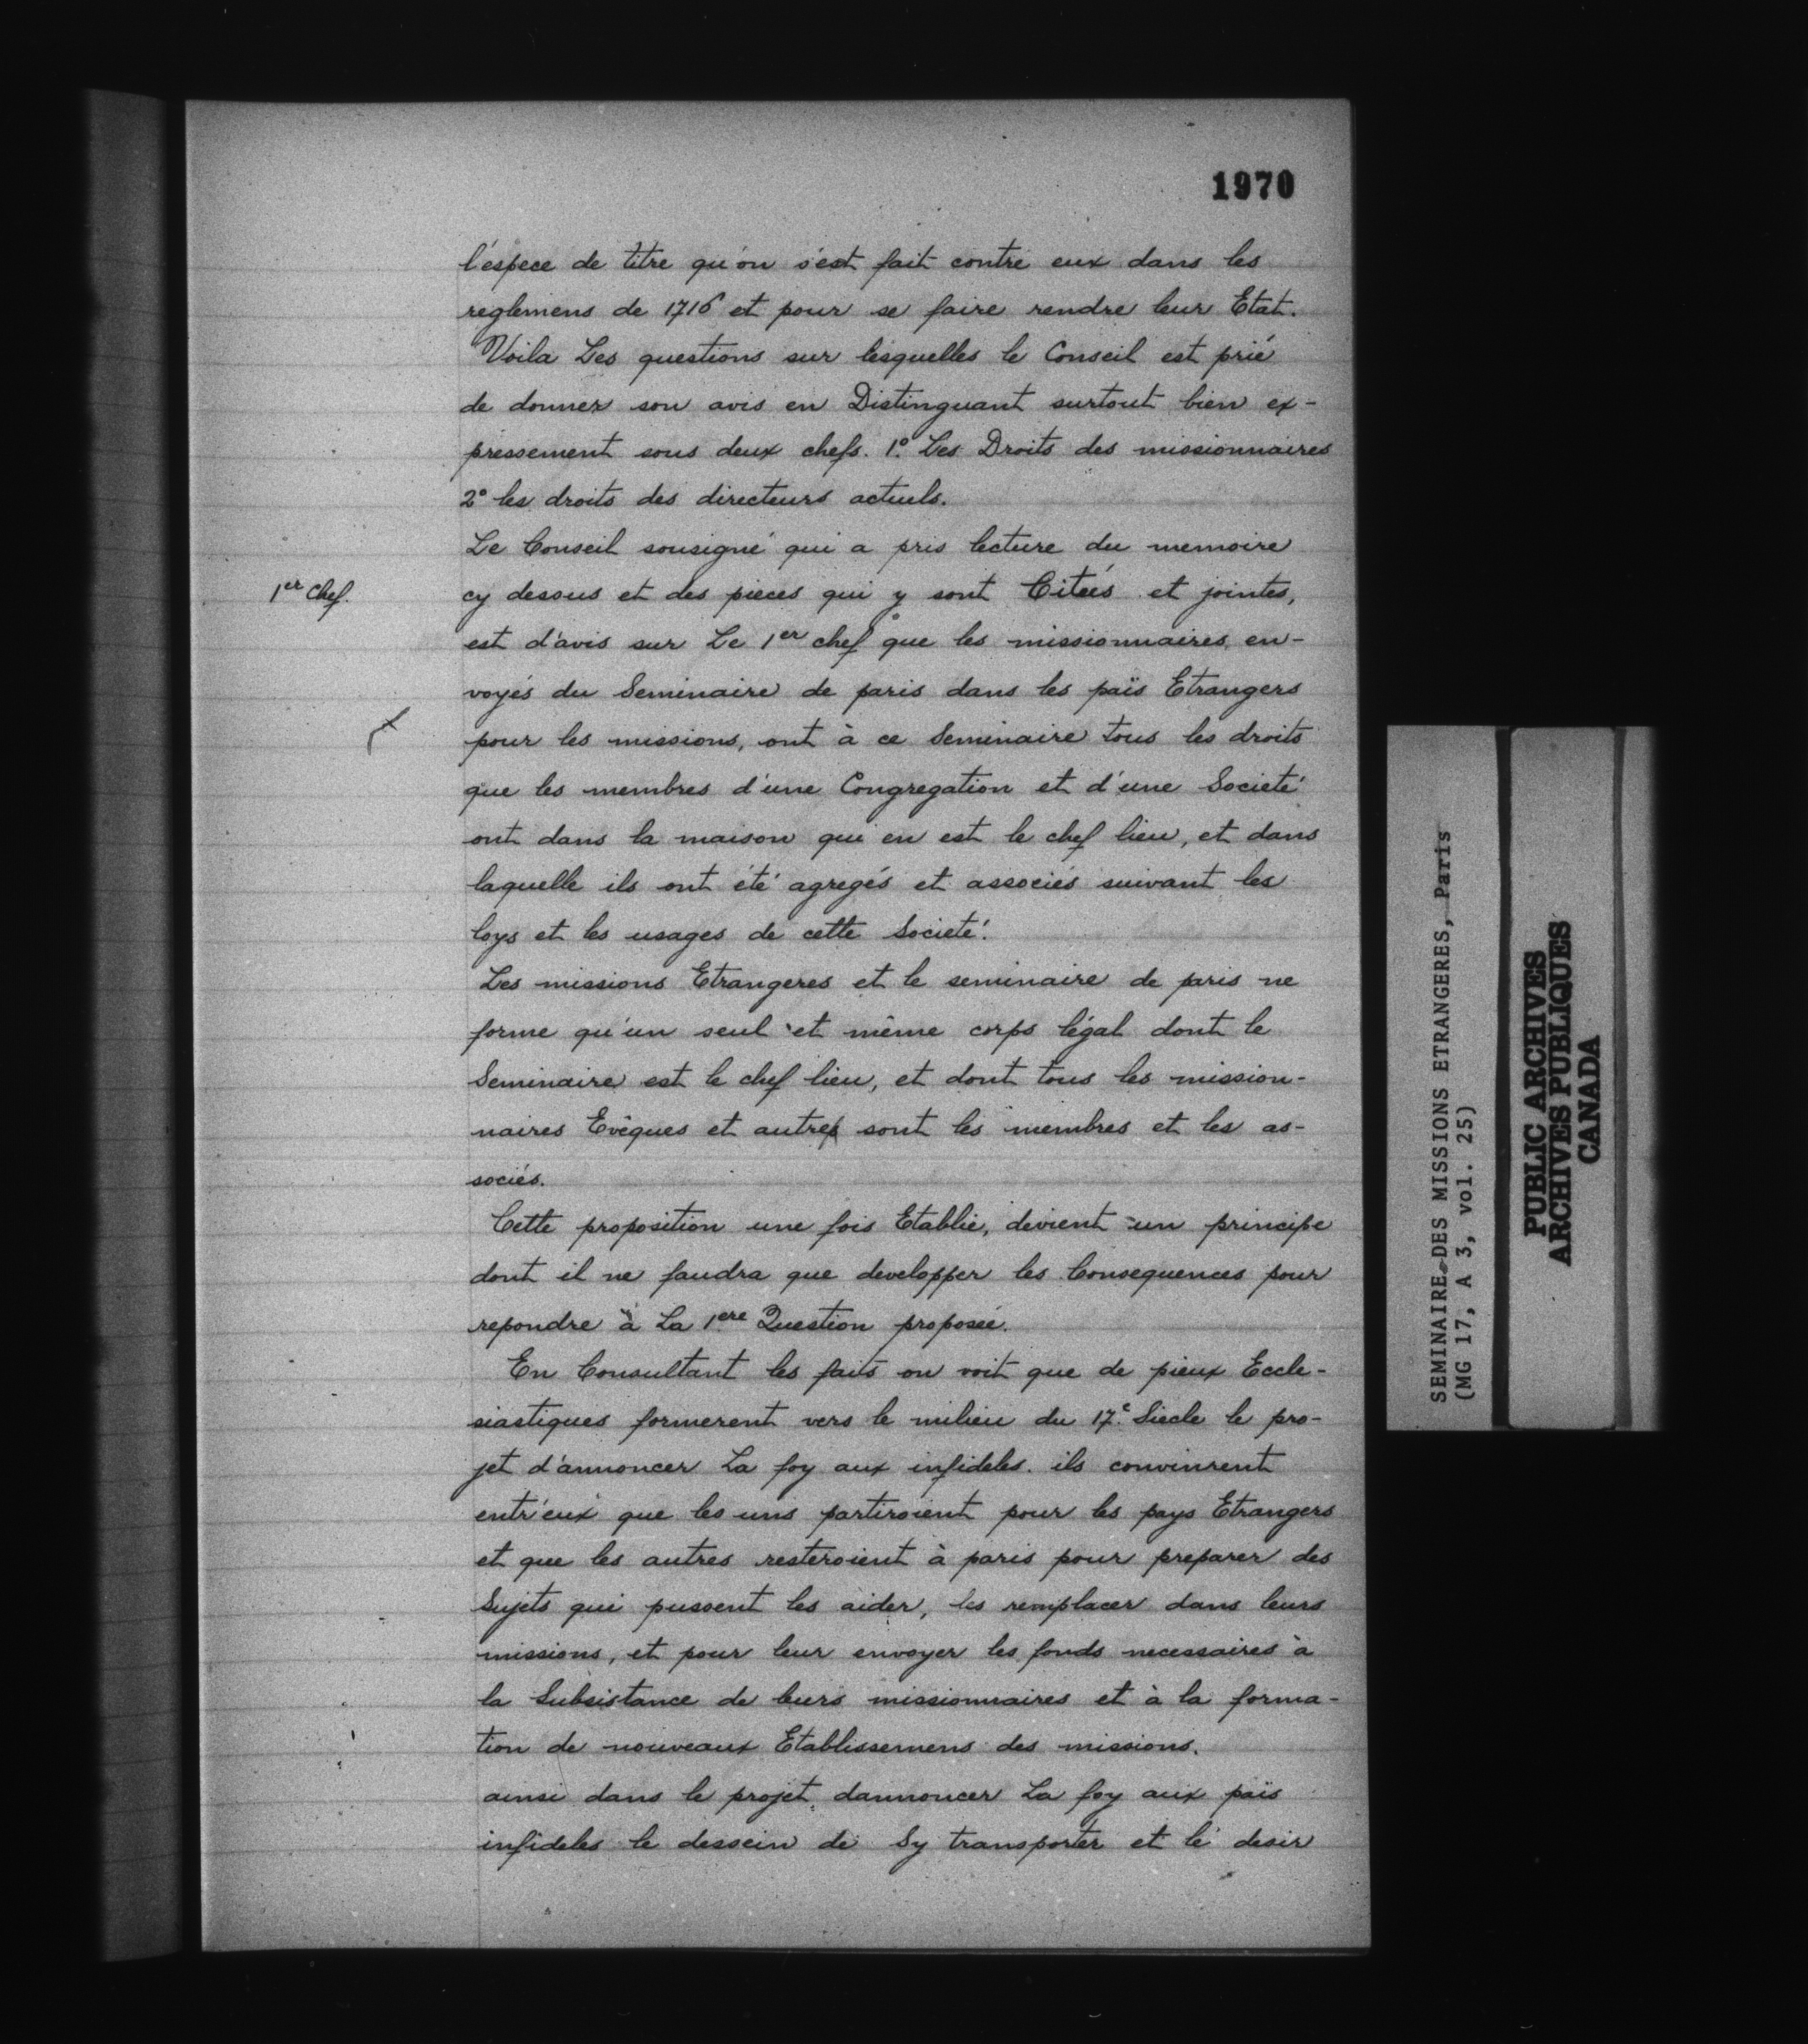 1970
l'espece de titre qu'on s'est fait contre eux dans les
reglemens de 1716 et pour se faire rendre leur Etat.
Voila Les questions sur lesquelles le Conseil est prié
de donner son avis en Distinguant surtout bien ex-
pressement sous deux chefs. 1º. Les Droits des missionnaires
2º les droits des directeurs actuels.
Le Conseil sousigné qui a pris lecture du memoire
1er Chef.
cy dessus et des pieces qui y sont Citées et jointes,
est d'avis sur Le 1er chef que les missionnaires en-
voyés du Seminaire de paris dans les païs Etrangers
pour les missions, ont à ce Seminaire tous les droits
que les membres d'une Congregation et d'une Societé
ont dans la maison qui en est le chef lieu, et dans
laquelle ils ont été agregés et associés suivant les
loys et les usages de cette Societé.
Les missions Etrangeres et le seminaire de paris ne
forme qu'un seul et même corps légal dont le
Seminaire est le chef lieu, et dont tous les mission-
naires Evêques et autres sont les membres et les as-
sociés.
Cette proposition une fois Etablie, devient un principe
dont il ne faudra que developper les Consequences pour
repondre à La 1ere Question proposée.
En Consultant les faits on voit que de pieux Eccle-
siastiques formerent vers le milieu du 17e. Siecle le pro-
jet d'annoncer La foy aux infideles. ils convinrent
entr'eux que les uns partiroient pour les pays Etrangers
et que les autres resteroient à paris pour preparer des
Sujets qui pussent les aider, les remplacer dans leurs
missions, et pour leur envoyer les fonds necessaires à
la Subsistance de leurs missionnaires et à la forma-
tion de nouveaux Etablissemens des missions.
ainsi dans le projet dannoncer La foy aux païs
infideles le dessein de Sy transporter et le desir
SEMINAIRE DES MISSIONS ETRANGERES, Paris
(MG 17, A 3, vol. 25)
PUBLIC ARCHIVES
ARCHIVES PUBLIQUES
CANADA